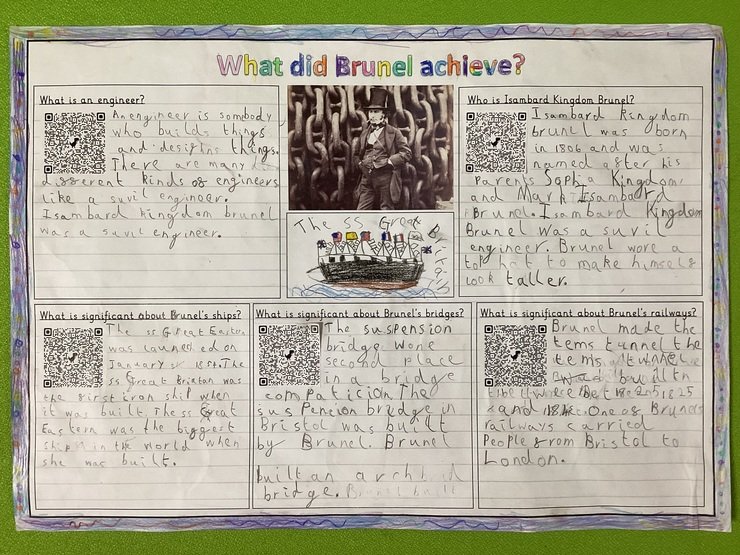 What did Brunel achieve?
What is an engineer?
An engineer is sombody
who builds things
and desigins things.
There are many
different kinds of engineers
like a suvil engineer.
Isambard kingdom brunel
was a suvil engineer.
The SS Great
Britain
Who is Isambard Kingdom Brunel?
Isambard kingdom
brunel was born
in 1806 and was
named after his
Parents Sophia Kingdom
and Mark Isambard
Brunel. Isambard Kingdom
Brunel was a suvil
engineer. Brunel wore a
top hat to make himself
look taller.
What is significant about Brunel's ships?
The SS Great Eastern
was launched on
January 31 1858. The
SS Great Britan was
the first iron ship when
it was built. The SS Great
Eastern was the biggest
ship in the world when
she was built.
What is significant about Brunel's bridges?
The suspension
bridge wone
second place
in a bridge
compatician. The
susPension bridge in
Bristol was built
by Brunel. Brunel
built an arch
bridge. Brunel built
What is significant about Brunel's railways?
Brunel made the
tems tunnel the
tems tunnel
built
1825
and One of Brunels
railways carried
People from Bristol to
London.